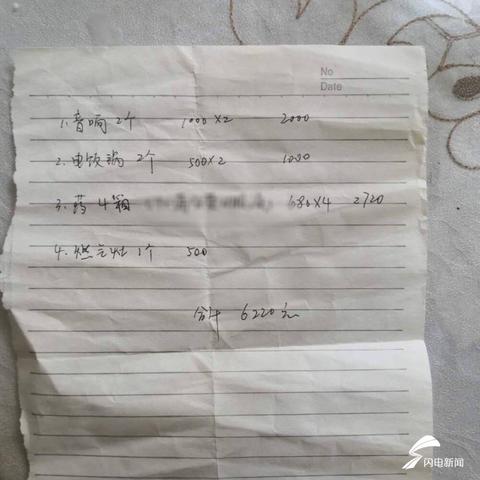 No
Date
1. 音响 2个 1000×2 2000
2. 电饭锅 2个 500×2 1000
3. 药 4箱 680×4 2720
4. 燃气灶 1个 500
合计 6220元
闪电新闻